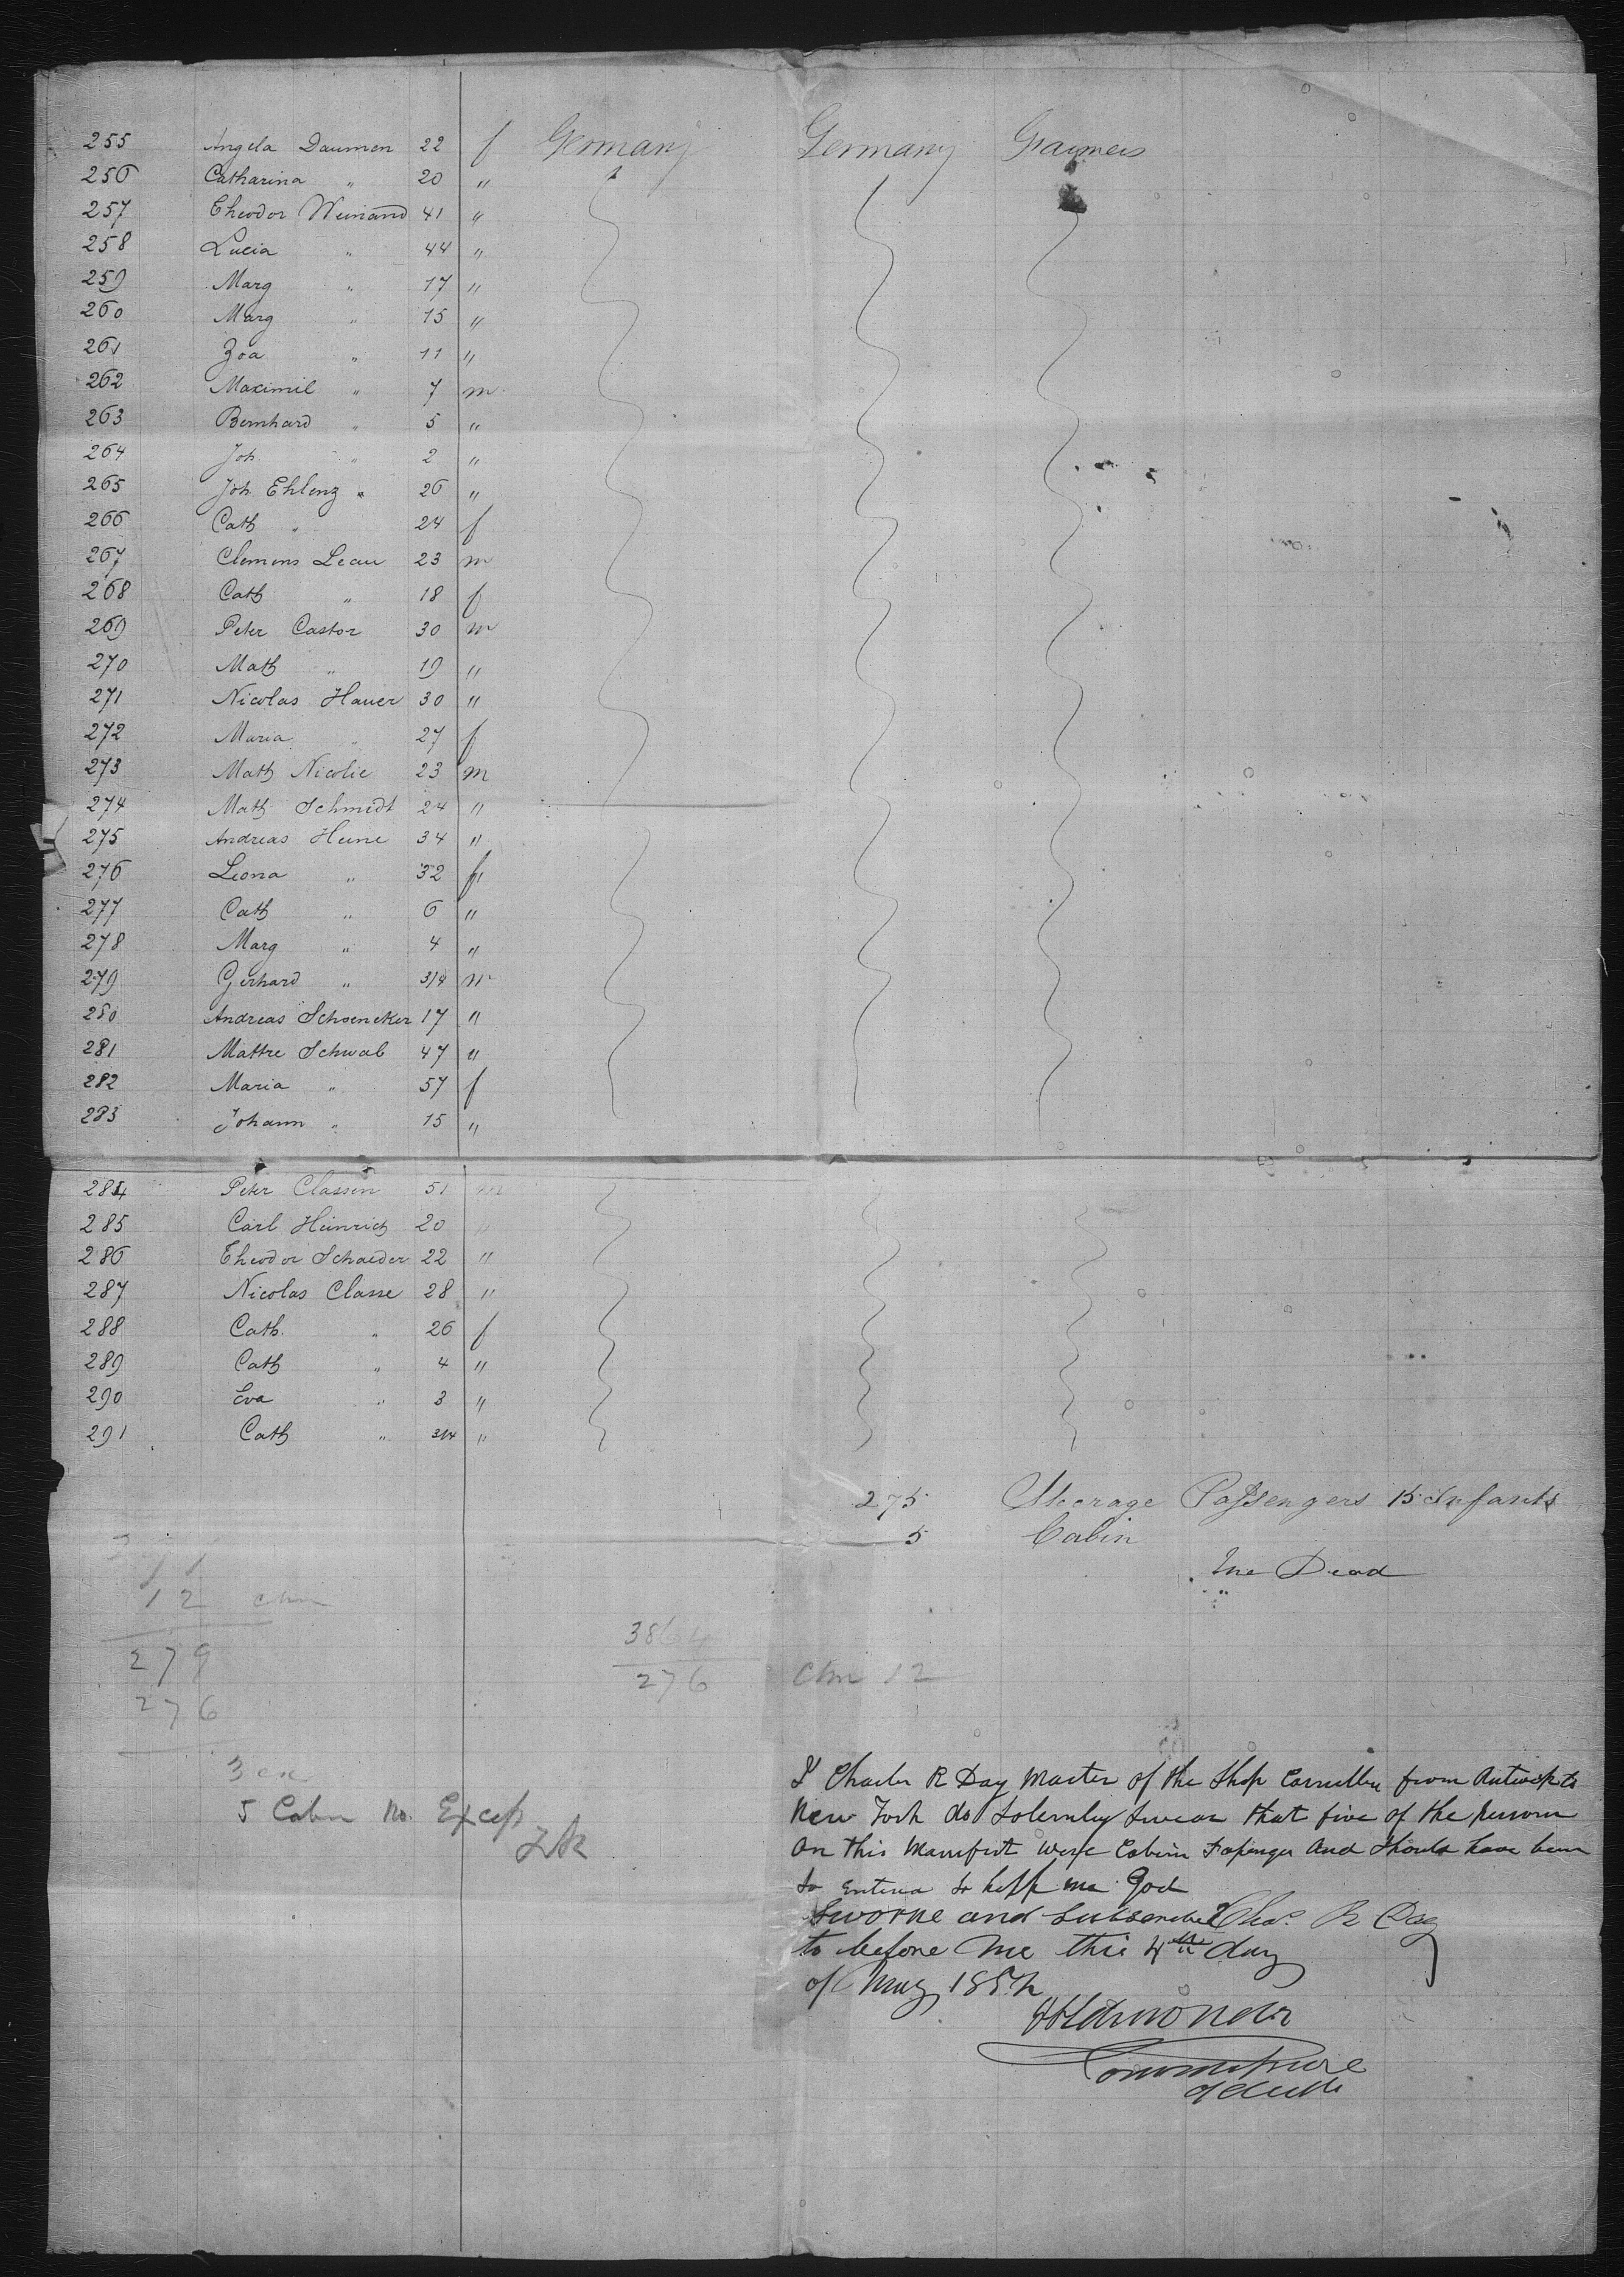 255 Angela Daumen 22 f Germany Germany Farmers
256 Catharina " 20 "
257 Theodor Weinand 41 "
258 Lucia " 44 "
259 Marg " 17 "
260 Marg " 15 "
261 Zoa " 11 "
262 Maximil " 7 m
263 Bernhard " 5 "
264 Joh " 2 "
265 Joh. Ehlenz " 26 "
266 Cath " 24 f
267 Clemens Leau 23 m
268 Cath " 18 f
269 Peter Castor 30 m
270 Math " 19 "
271 Nicolas Hauer 30 "
272 Maria " 27 f
273 Math Nicolie 23 m
274 Math Schmidt 24 "
275 Andreas Heine 34 "
276 Leona " 32 f
277 Cath " 6 "
278 Marg " 4 "
279 Gerhard " 3/4 m
280 Andreas Schoencker 17 "
281 Mattre Schwab 47 "
282 Maria " 57 f
283 Johann " 15 "
284 Peter Classen 51 m
285 Carl Heinrich 20 "
286 Theodor Schaeder 22 "
287 Nicolas Classe 28 "
288 Cath. " 26 f
289 Cath " 4 "
290 Eva " 3 "
291 Cath " 3/4 "
275 Steerage Passengers 15 Infants
5 Cabin
One Dead
12 chn
279
276
3864
276 Chn 12
3 ex
5 Cabin No. Excess
I Charles R Day Master of the Ship from Antwerp to
New York do Solemnly Swear that five of the persons
on this Manifest were Cabin Passenger and Should have been
so entered So help me God
Sworne and Subscribed Chas. R Day
to before me this 4th day
of May 1857